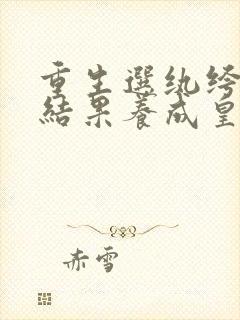 重生選纨绔
結果養成皇
赤雪